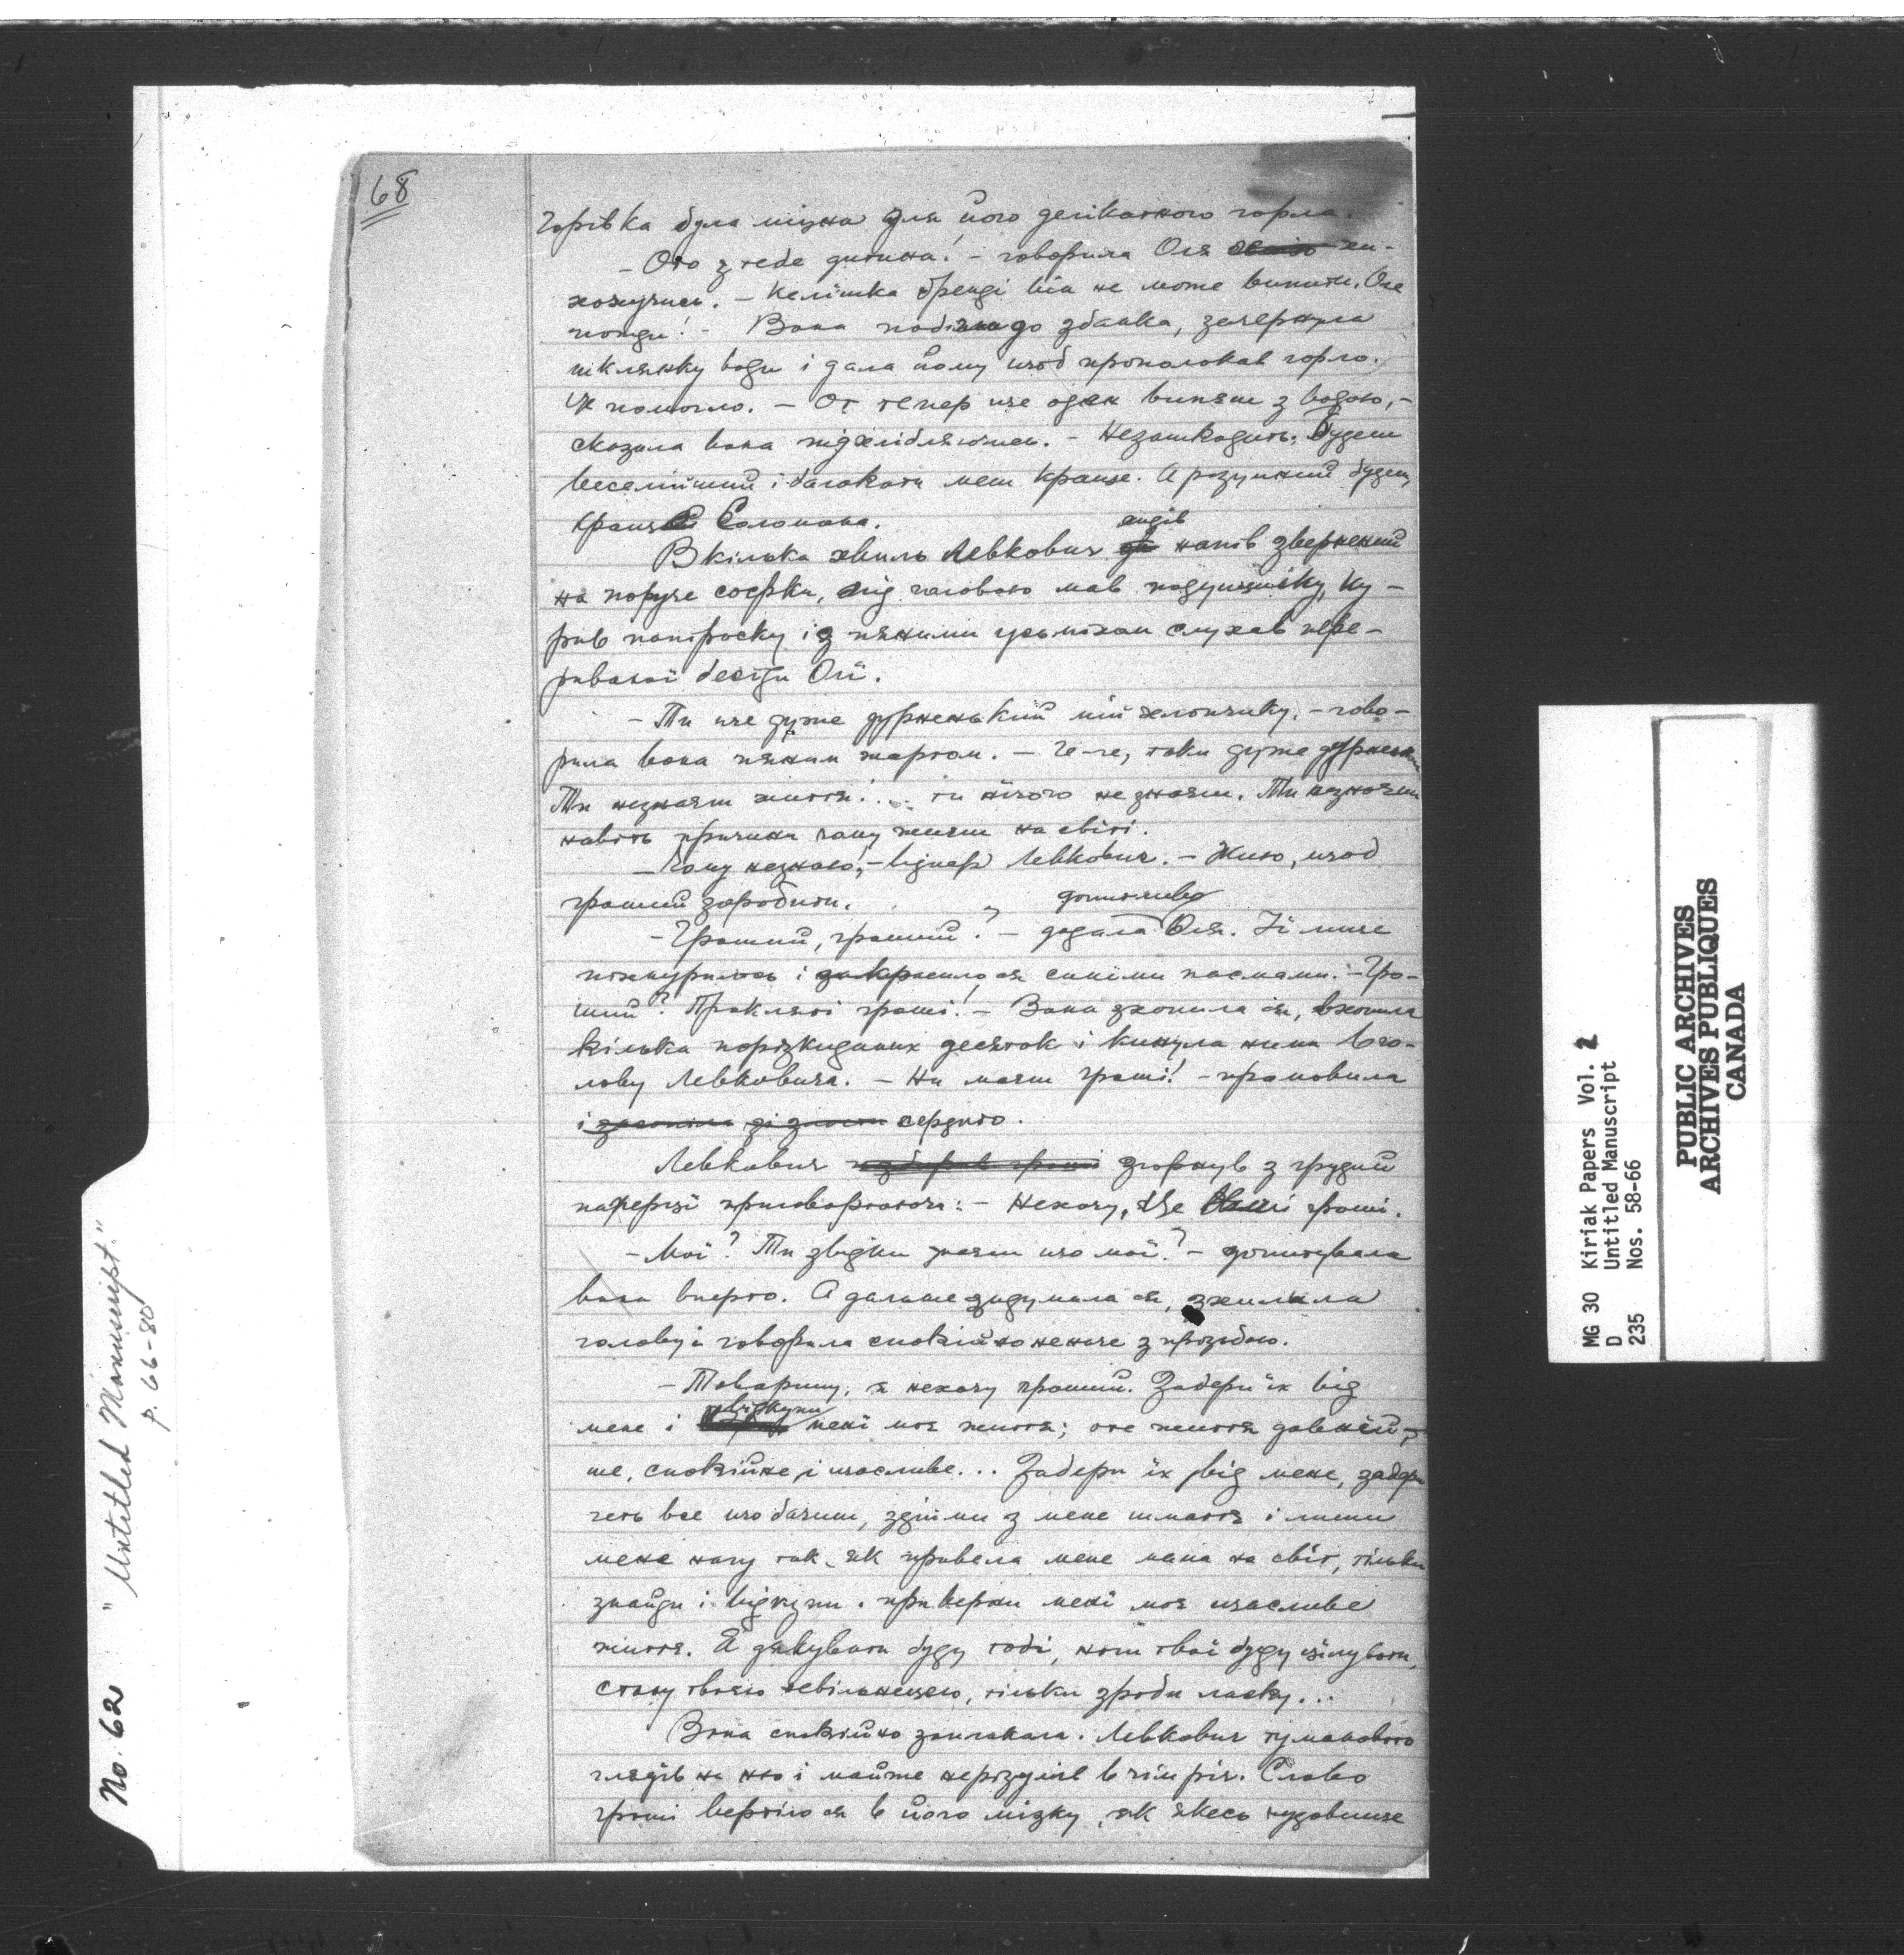 68
Горівка була міцна для його делікатного горла.
— Ото з тебе дитина! — говорила Оля хи-
хочучись. — Келішка бренді він не може випити. Оле
пожди! — Вона побігла до збанка, зачерпнула
шклянку води і дала йому щоб прополокав горло.
Це помогло. — От тепер ще один випєш з водою, —
сказила вона підхлібляючись. — Незашкодить. Будеш
веселіший і балакати меш краще. А розумний будеш,
краще Соломона.
В кілька хвиль Левкович сидів напів звернений
на поруче софки, під головою мав подушечку, ку-
рив папіроску і з пяними усьміхом слухав пере-
риваної бесїди Олї.
— Ти ще дуже дурненький мій хлопчику. — гово-
рила вона пяним жартом. — Ге-ге, таки дуже дурненький
Ти незнаєш життя! ... ти нічого не знаєш. Ти незнаєш
навіть причини чому жиєш на світі.
— Чому незнаю, — відпер Левкович. — Жию, щоб
грошей заробити.
— Грошей, грошей? — додала допитливо Оля. Її лице
похмурилось і закрасило ся синїми пасмами. — Гро-
шей? Прокляті гроші! — Вона зхопила ся, вхопила
кілька порозкиданих десяток і кинула ними в го-
лову Левковича. — На маєш гроші! — промовила
і сердито.
Левкович згорнув з грудий
папері приговорюючи: — Нехочу, Це Ваші гроші.
— Мої? Ти звідки знаєш що мої? — допитувала
вона вперто. А дальше задумала ся, зхилила
голову і говорила спокійно неначе з прозьбою.
— Товаришу, я нехочу грошей. Забери їх від
мене і відкупи мені моє життя; оте життя давнїй-
ше, спокійне, і щасливе... Забери їх від мене, забери
геть все що бачиш, здійми з мене шмаття і лиши
мене нагу так, як привела мене мама на світ, тільки
знайди і відкупи. приверни мені моє щасливе
життя. Я дякувати буду тобі, ноги твої буду цілувати,
стану твоєю невільницею, тільки зроби ласку...
Вона спокійно заплакала. Левкович туманового
глядів на ню і майже нерозумів в чім річ. Слово
гроші вертіло ся в його мізку, як якесь чудовище
No. 62 "Untitled Manuscript"
p. 66-80
MG 30 Kiriak Papers Vol. 2
D Untitled Manuscript
235 Nos. 58-66
PUBLIC ARCHIVES
ARCHIVES PUBLIQUES
CANADA